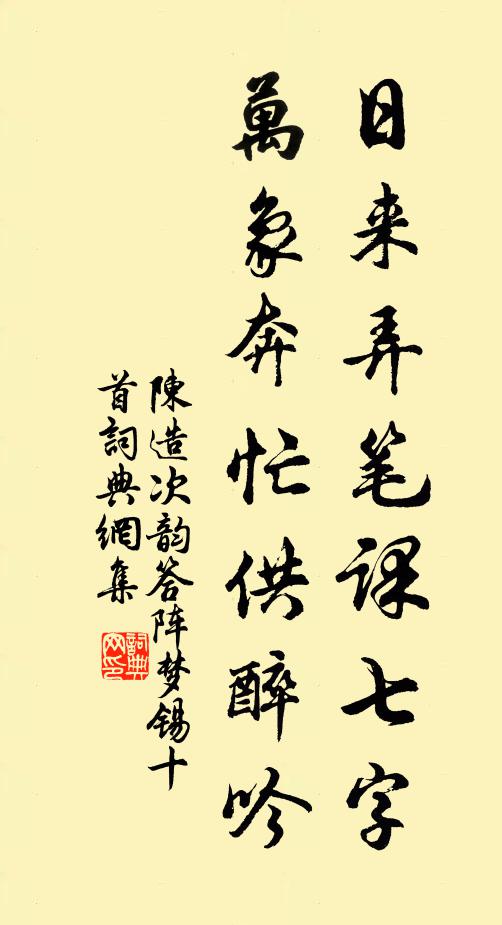 日来弄笔课七字
萬象奔忙供醉吟
陳造次韵答阵梦锡十
首詞典網集
詞典
网印